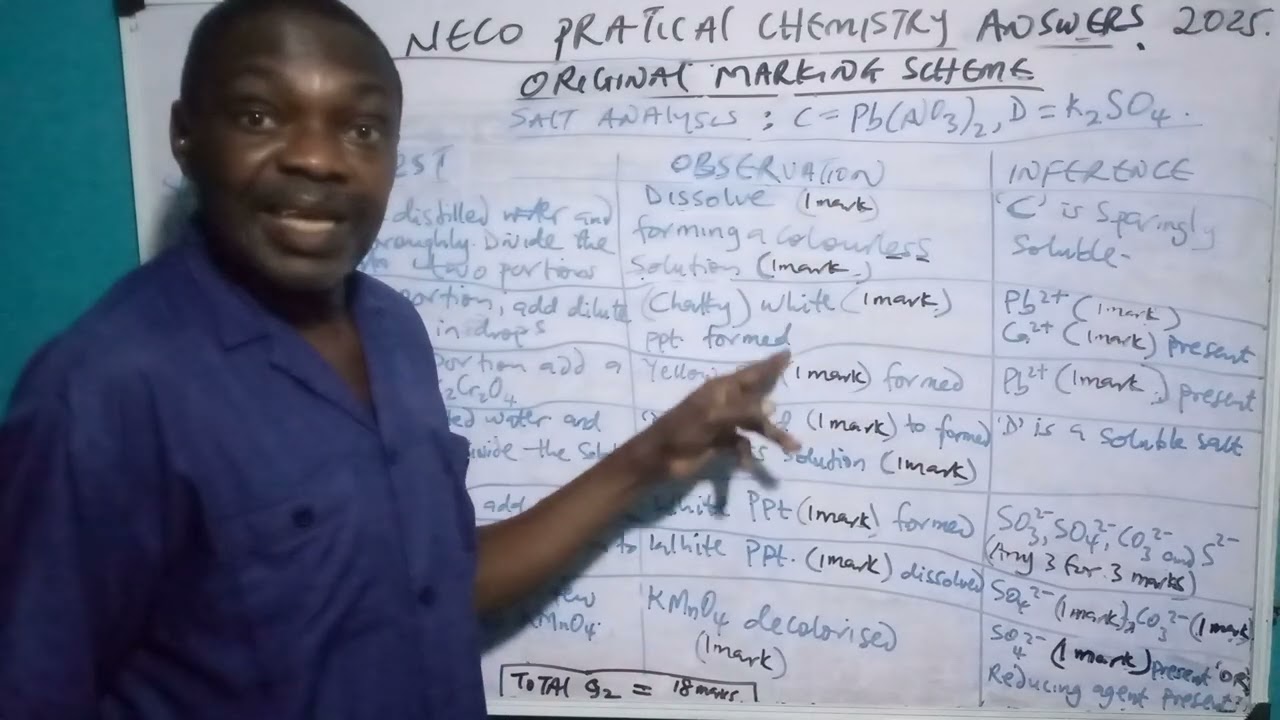 NECO PRATICAL CHEMISTRY ANSWERS. 2025.
ORIGINAL MARKING SCHEME
SALT ANALYSIS ; C = Pb(NO3)2, D = K2SO4.
EST OBSERVATION INFERENCE
distilled water and
oroughly. Divide the
two portions
Dissolve (1mark)
forming a colourless
solution (1mark.)
'C' is Sparingly
Soluble-
portion, add dilute
in drops
(Chalky) white (1mark)
ppt formed
Pb2+ (1mark)
Ca2+ (1mark) present
portion add a
2Cr2O4
Yellow (1mark) formed
Pb2+ (1mark.) present
ted water and
ivide the Sol
(1mark) to formed
solution (1mark)
'D' is a soluble salt
add
White PPt (1mark) formed
SO3 2-, SO4 2-, CO3 2- and S2-
(Any 3 for 3 marks)
to
White PPt. (1mark) dissolved
SO4 2- (1mark), CO3 2- (1mark)
few
KMnO4.
KMnO4 decolorised
(1mark)
SO4 2- (1mark) present 'OR'
Reducing agent present
TOTAL Q2 = 18marks.